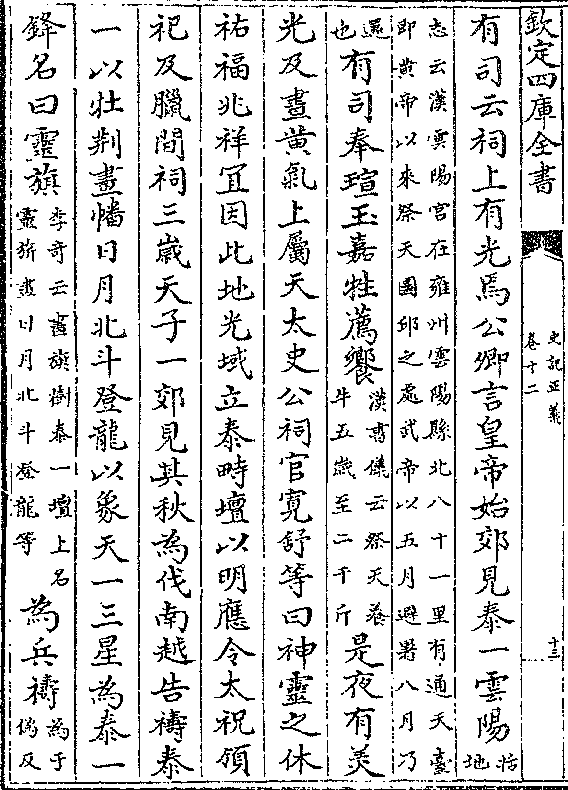 欽定四庫全書
史記正義
卷十二
十三
有司云祠上有光焉公卿言皇帝始郊見泰一雲陽括地
志云漢雲陽宮在雍州雲陽縣北八十一里有通天臺
即黄帝以來祭天圜邱之處武帝以五月避暑八月乃
還也有司奉瑄玉嘉牲薦饗漢舊儀云祭天養牛五歲至二千斤是夜有美
光及晝黄氣上屬天太史公祠官寛舒等曰神靈之休
祐福兆祥宜因此地光域立泰畤壇以明應令太祝領
祀及臘間祠三歲天子一郊見其秋為伐南越告禱泰
一以牡荆畫幡日月北斗登龍以象天一三星為泰一
鋒名曰靈旗李奇云畫旗樹泰一壇上名靈旂畫日月北斗登龍等為兵禱為于偽反